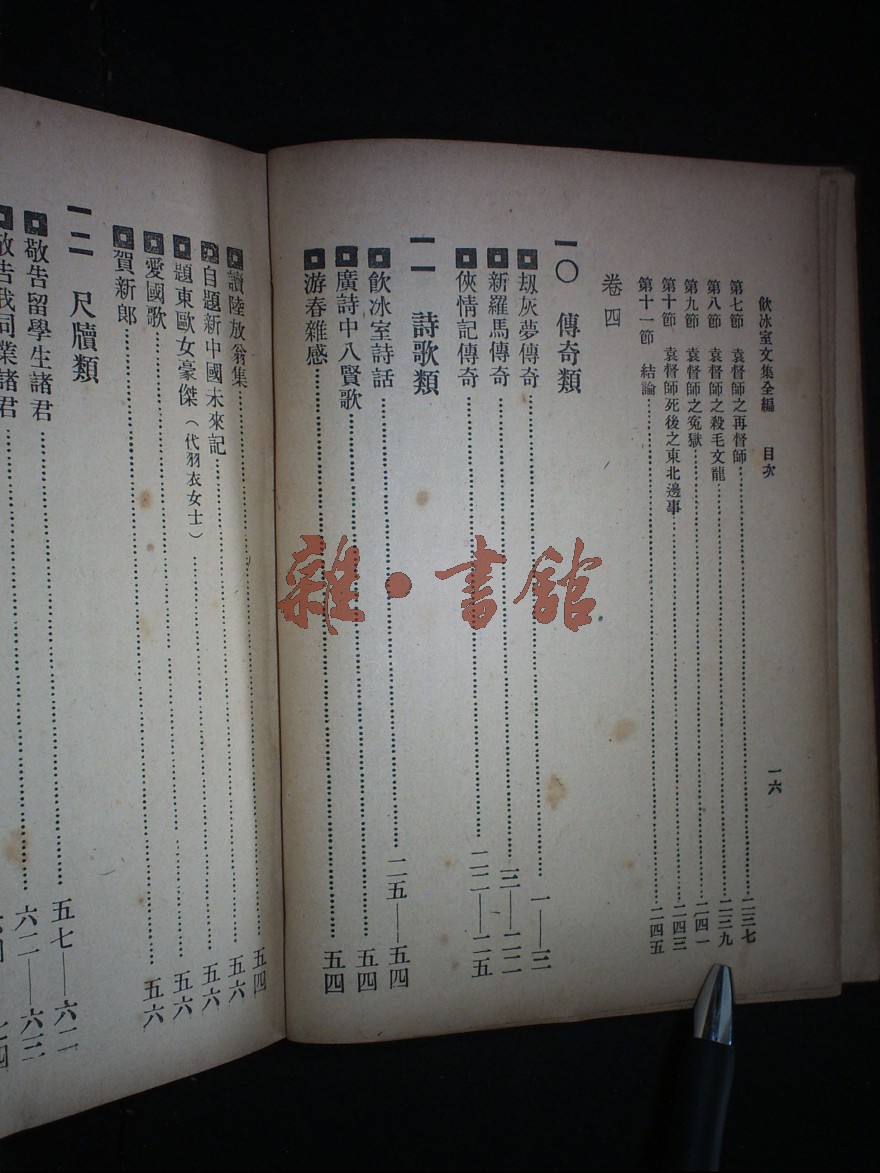 飲冰室文集全編 目次 一六
第七節 袁督師之再督師……二三七
第八節 袁督師之殺毛文龍……二三九
第九節 袁督師之冤獄……二四一
第十節 袁督師死後之東北邊事……二四三
第十一節 結論……二四五
卷四
一〇 傳奇類
刼灰夢傳奇……一—三
新羅馬傳奇……三—二二
俠情記傳奇……二二—二五
一一 詩歌類
飲冰室詩話……二五—五四
廣詩中八賢歌……五四
游春雜感……五四
讀陸放翁集……五四
自題新中國未來記……五六
題東歐女豪傑(代羽衣女士)……五六
愛國歌……五六
賀新郎……五六
一二 尺牘類
敬告留學生諸君……五七—六二
敬告我同業諸君……六二—六三
雜·書館